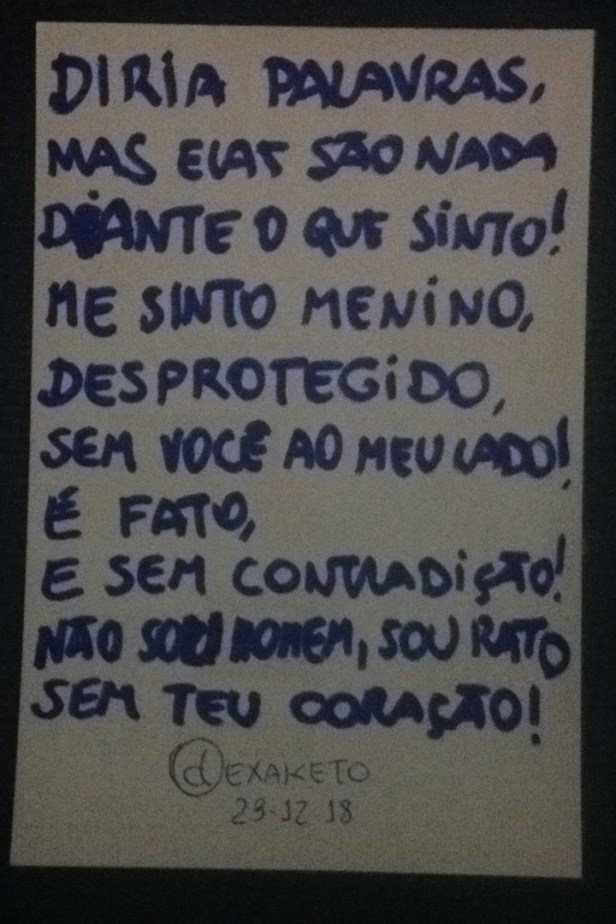 DIRIA PALAVRAS,
MAS ELAS SÃO NADA
DIANTE O QUE SINTO!
ME SINTO MENINO,
DESPROTEGIDO,
SEM VOCÊ AO MEU LADO!
É FATO,
E SEM CONTRADIÇÃO!
NÃO SOU HOMEM, SOU RATO
SEM TEU CORAÇÃO!
@EXAKETO
29-12 18